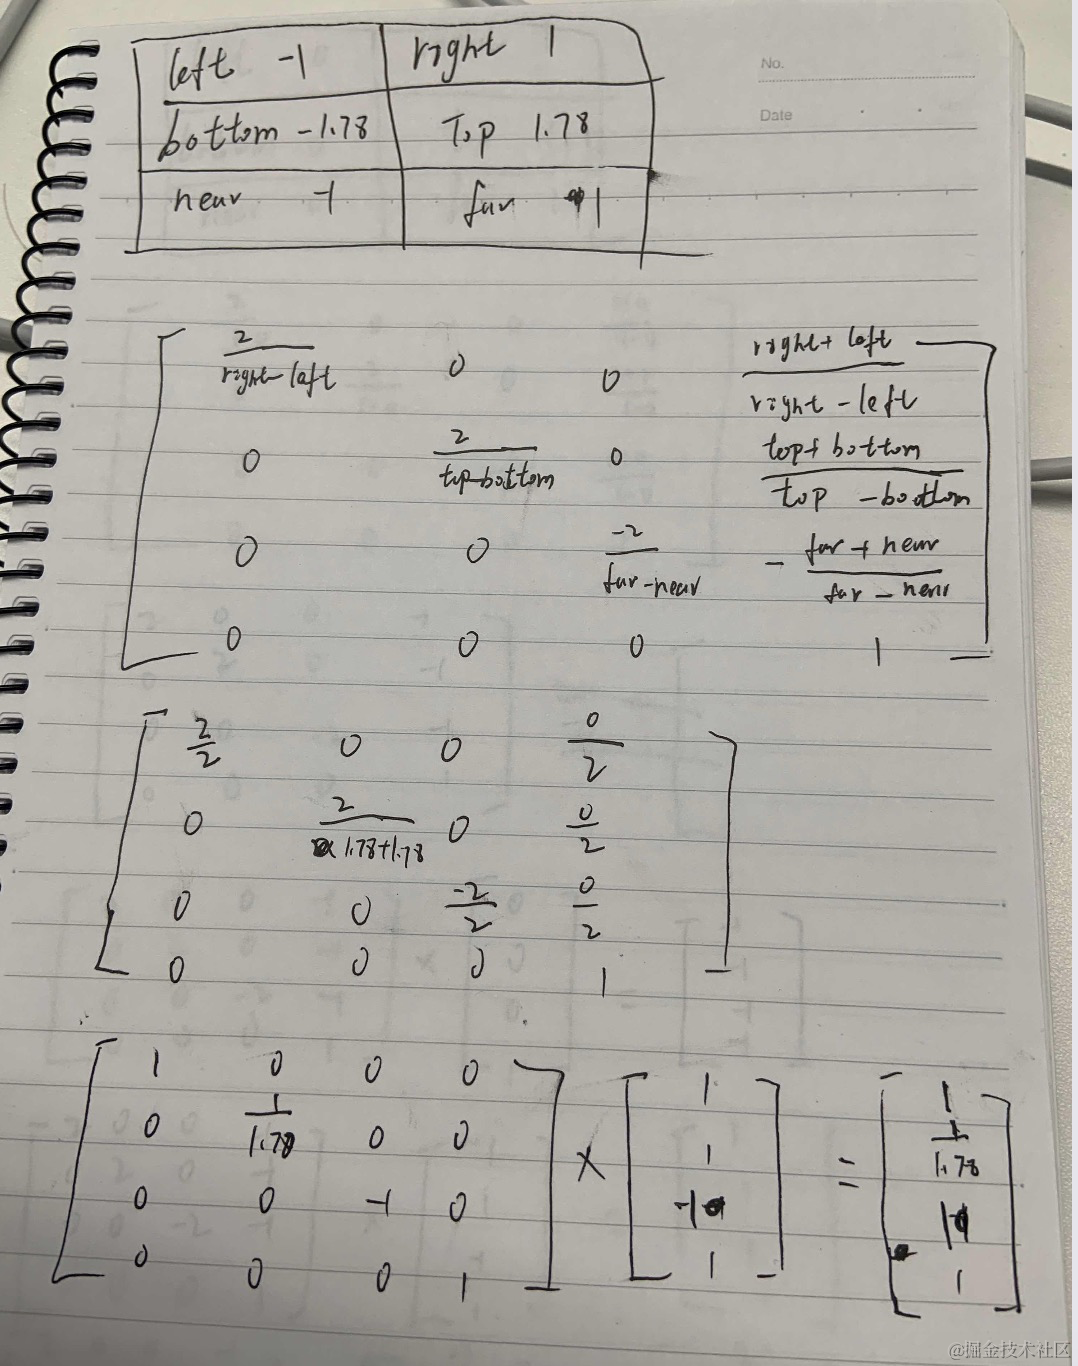 No.
Date
left -1 right 1
bottom -1.78 Top 1.78
near -1 far 1
2/right-left 0 0 right+left/right-left
0 2/top-bottom 0 top+bottom/top-bootom
0 0 -2/far-near -far+near/far-near
0 0 0 1
2/2 0 0 0/2
0 2/1.78+1.78 0 0/2
0 0 -2/2 0/2
0 0 0 1
1 0 0 0 1 1
0 1/1.78 0 0 × 1 = 1/1.78
0 0 -1 0 -1 1
0 0 0 1 1 1
@掘金技术社区